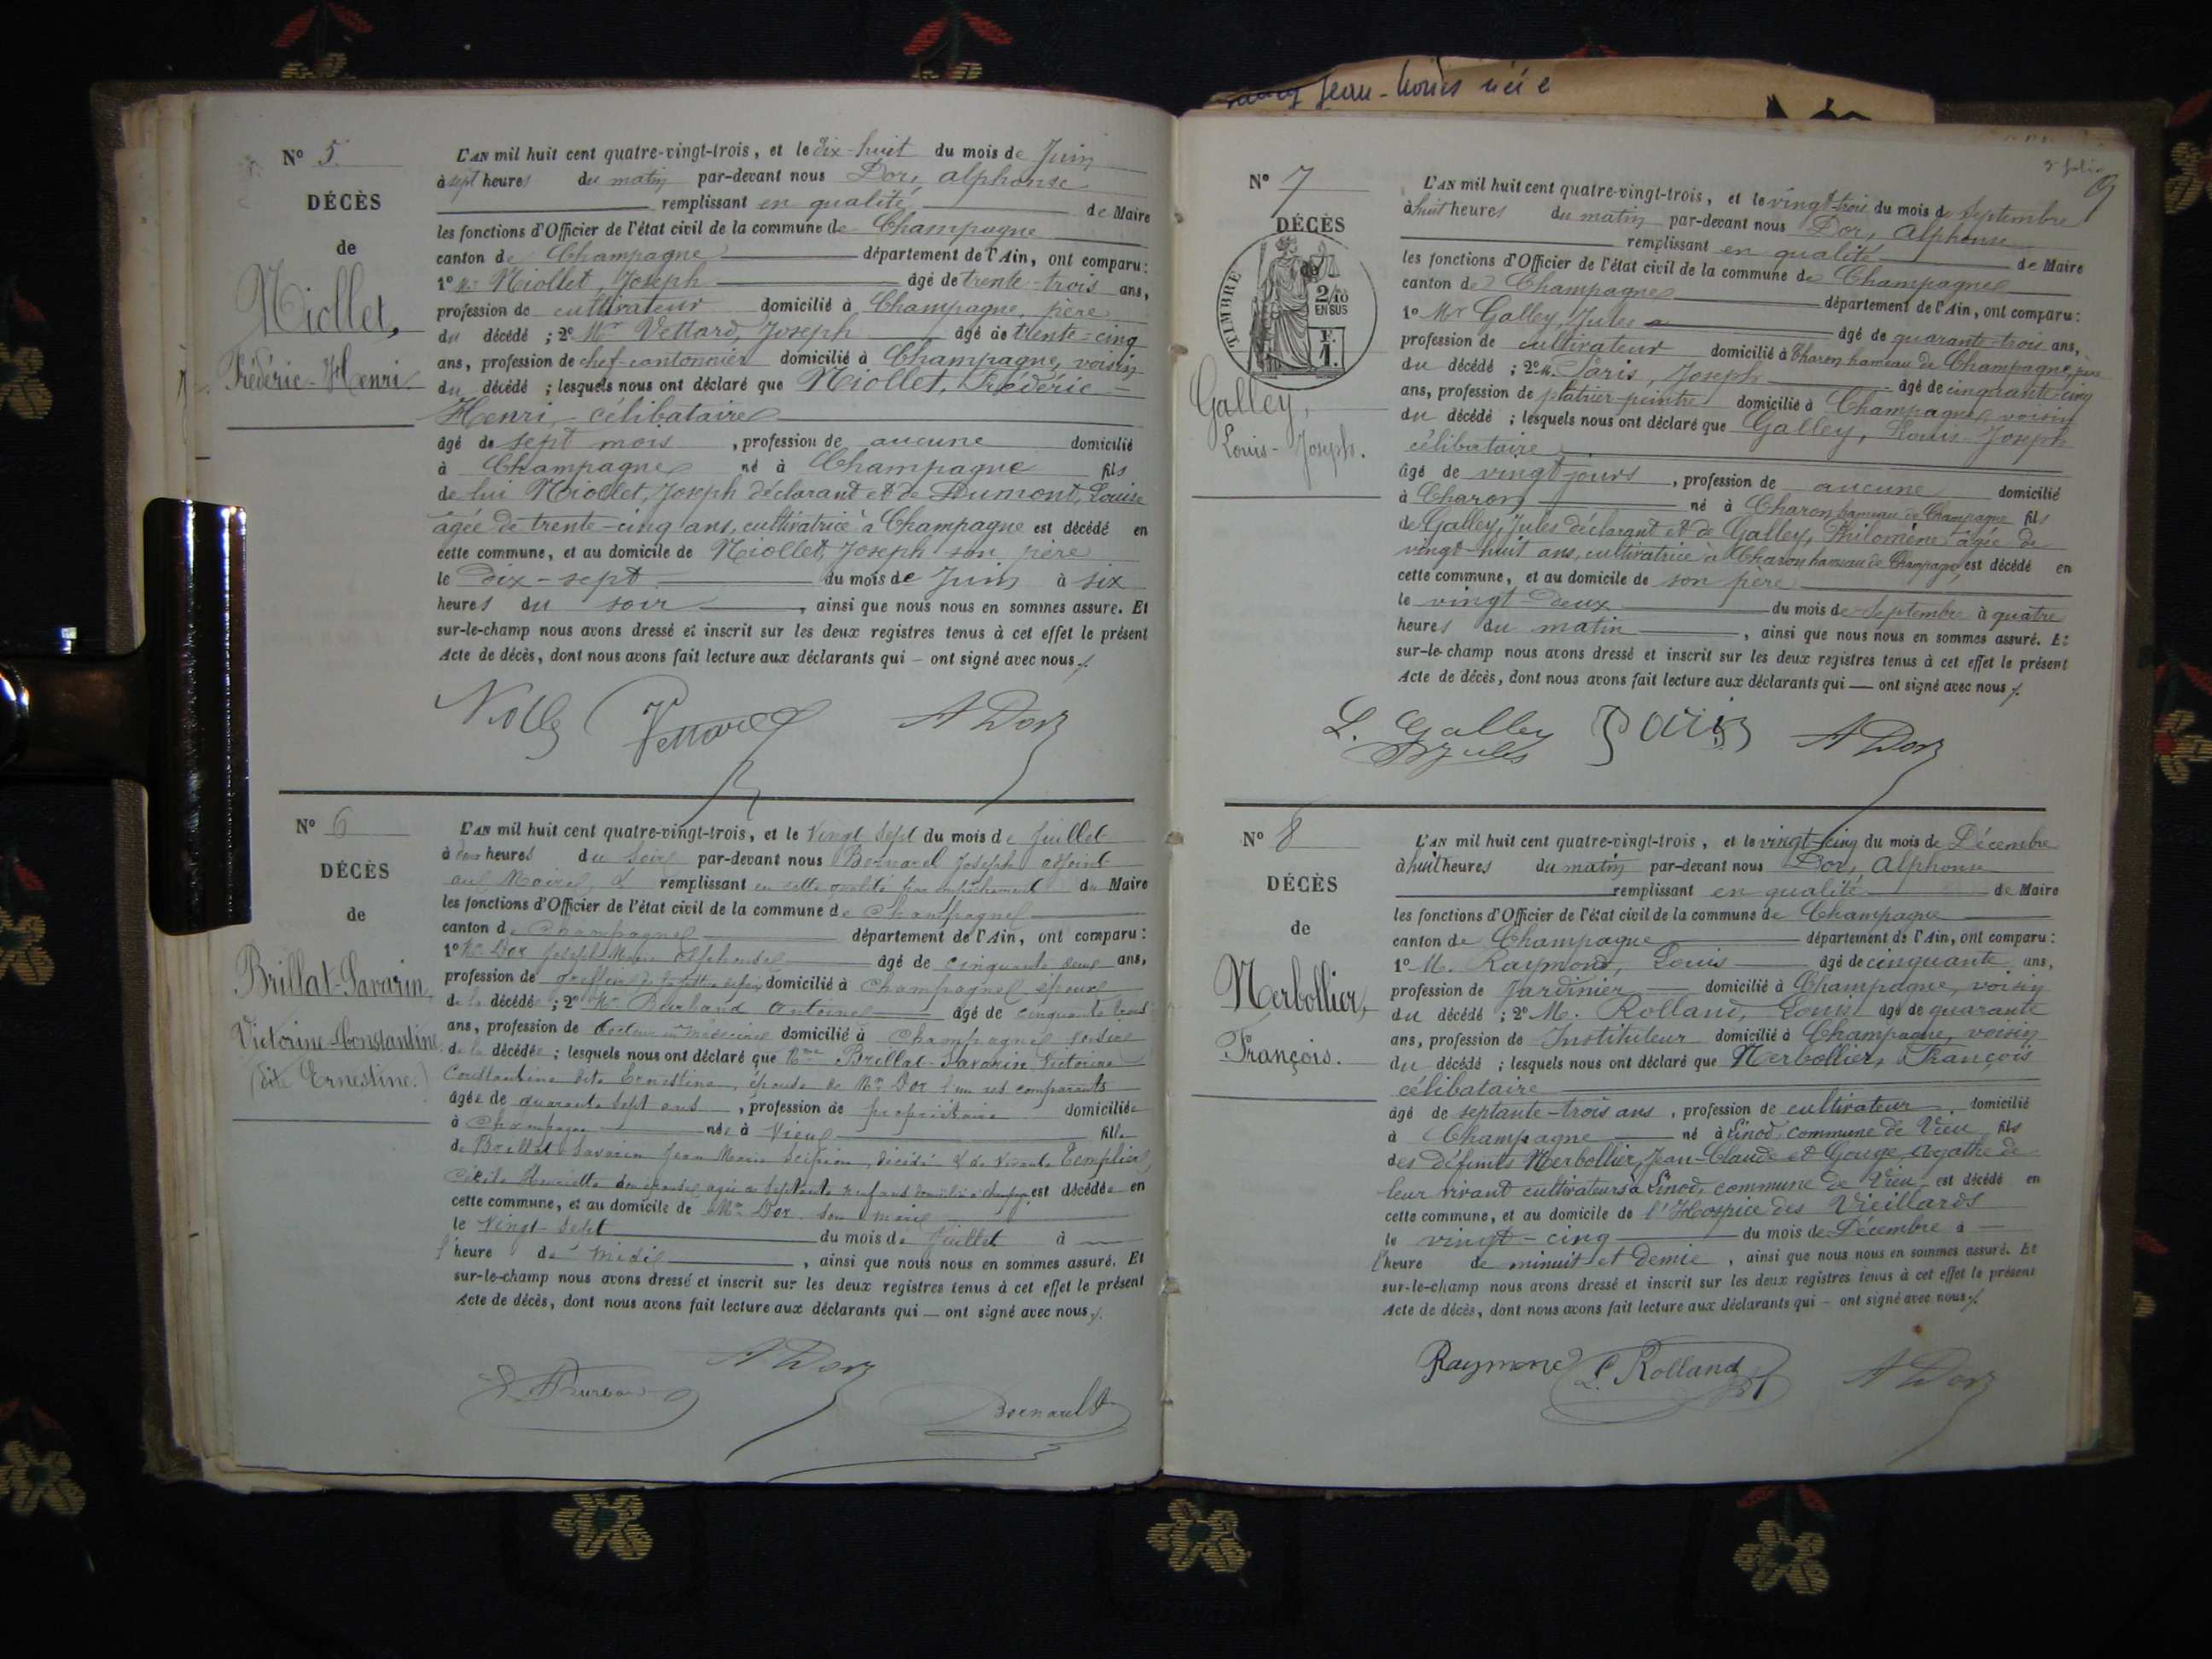 Jean-Louis né e
N° 5
DÉCÈS
de
Niollet,
Frédéric-Henri
L'AN mil huit cent quatre-vingt-trois, et le dix-huit du mois de Juin
à sept heures du matin par-devant nous Dor, Alphonse
remplissant en qualité de Maire
les fonctions d'Officier de l'état civil de la commune de Champagne
canton de Champagne département de l'Ain, ont comparu:
1° Mr Niollet, Joseph âgé de trente-trois ans,
profession de cultivateur domicilié à Champagne, père
du décédé ; 2° Mr Vettard, Joseph âgé de trente-cinq
ans, profession de chef-cantonnier domicilié à Champagne, voisin
du décédé ; lesquels nous ont déclaré que Niollet, Frédéric-
Henri, célibataire
âgé de sept mois , profession de aucune domicilié
à Champagne né à Champagne fils
de lui Niollet, Joseph déclarant et de Dumont, Louise
âgée de trente-cinq ans, cultivatrice à Champagne est décédé en
cette commune, et au domicile de Niollet, Joseph son père
le dix-sept du mois de Juin à six
heures du soir , ainsi que nous nous en sommes assuré. Et
sur-le-champ nous avons dressé et inscrit sur les deux registres tenus à cet effet le présent
Acte de décès, dont nous avons fait lecture aux déclarants qui – ont signé avec nous ./.
Vettard A Dor
N° 6
DÉCÈS
de
Brillat-Savarin,
Victorine-Constantine
(dite Ernestine.)
L'AN mil huit cent quatre-vingt-trois, et le Vingt Sept du mois de Juillet
à deux heures du Soir par-devant nous Bernard Joseph adjoint
au Maire, remplissant en cette qualité par empêchement du Maire
les fonctions d'Officier de l'état civil de la commune de Champagne
canton de Champagne département de l'Ain, ont comparu:
1° Mr Dor Joseph Marie Alphonse âgé de cinquante deux ans,
profession de greffier de la justice de paix domicilié à Champagne époux
de la décédée ; 2° Mr Burband Antoine âgé de cinquante trois
ans, profession de docteur en médecine domicilié à Champagne voisin
de la décédée ; lesquels nous ont déclaré que Mme Brillat-Savarin Victorine
Constantine dite Ernestine, épouse de Mr Dor l'un des comparants
âgée de quarante sept ans , profession de propriétaire domiciliée
à Champagne née à Vieu fille
de Brillat Savarin Jean Marie Scipion, décédé & de vivante Templier
Cécile Henriette son épouse agée de septante neuf ans domiciliée à Champagne est décédée en
cette commune, et au domicile de Mr Dor son mari
le Vingt-Sept du mois de Juillet à
l'heure de midi , ainsi que nous nous en sommes assuré. Et
sur-le-champ nous avons dressé et inscrit sur les deux registres tenus à cet effet le présent
Acte de décès, dont nous avons fait lecture aux déclarants qui — ont signé avec nous ./.
A Dor
Bernard
9
N° 7
DÉCÈS
de
TIMBRE
2/10
EN SUS
F.
1.
Galley,
Louis-Joseph.
L'AN mil huit cent quatre-vingt-trois, et le vingt-trois du mois de Septembre
à huit heures du matin par-devant nous Dor, Alphonse
remplissant en qualité de Maire
les fonctions d'Officier de l'état civil de la commune de Champagne
canton de Champagne département de l'Ain, ont comparu:
1° Mr Galley, Jules âgé de quarante-trois ans,
profession de cultivateur domicilié à Charon hameau de Champagne, père
du décédé ; 2° M. Paris, Joseph âgé de cinquante-cinq
ans, profession de plâtrier-peintre domicilié à Champagne, voisin
du décédé ; lesquels nous ont déclaré que Galley, Louis-Joseph
célibataire
âgé de vingt jours , profession de aucune domicilié
à Charon né à Charon hameau de Champagne fils
de Galley, Jules déclarant et de Galley, Philomène âgée de
vingt-huit ans, cultivatrice à Charon hameau de Champagne, est décédé en
cette commune, et au domicile de son père
le vingt-deux du mois de Septembre à quatre
heures du matin , ainsi que nous nous en sommes assuré. Et
sur-le-champ nous avons dressé et inscrit sur les deux registres tenus à cet effet le présent
Acte de décès, dont nous avons fait lecture aux déclarants qui — ont signé avec nous ./.
L. Galley Paris A Dor
Jules
N° 8
DÉCÈS
de
Nerbollier,
François.
L'AN mil huit cent quatre-vingt-trois, et le vingt-cinq du mois de Décembre
à huit heures du matin par-devant nous Dor, Alphonse
remplissant en qualité de Maire
les fonctions d'Officier de l'état civil de la commune de Champagne
canton de Champagne département de l'Ain, ont comparu:
1° M. Raymond, Louis âgé de cinquante ans,
profession de Jardinier domicilié à Champagne, voisin
du décédé ; 2° M. Rolland, Louis âgé de quarante
ans, profession de Instituteur domicilié à Champagne, voisin
du décédé ; lesquels nous ont déclaré que Nerbollier, François
célibataire
âgé de septante-trois ans , profession de cultivateur domicilié
à Champagne né à Linod, commune de Vieu fils
des défunts Nerbollier, Jean-Claude et Gouge, Agathe de
leur vivant cultivateurs à Linod, commune de Vieu est décédé en
cette commune, et au domicile de l'Hospice des Vieillards
le vingt-cinq du mois de Décembre à —
l'heure de minuit et demie , ainsi que nous nous en sommes assuré. Et
sur-le-champ nous avons dressé et inscrit sur les deux registres tenus à cet effet le présent
Acte de décès, dont nous avons fait lecture aux déclarants qui – ont signé avec nous ./.
Raymond L. Rolland A Dor